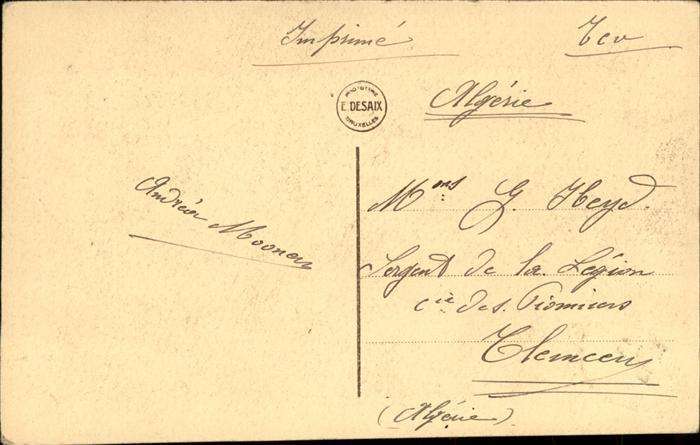 Imprimé
Tcv
PHOTOTYPIE
E. DESAIX
BRUXELLES
Algérie
Andréa Moonen
Mons G. Heyd.
Sergent de la Légion
Cie des Pionniers
Tlemcen
(Algérie)